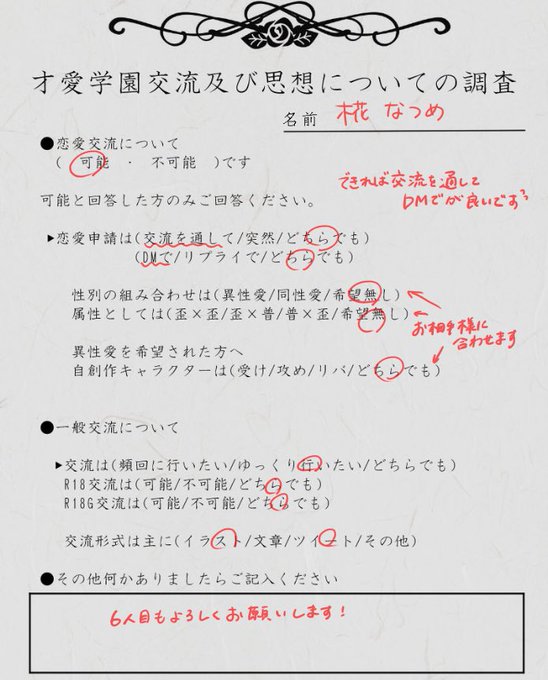 才愛学園交流及び思想についての調査
名前 椛 なつめ
●恋愛交流について
( 可能 ・ 不可能 )です
可能と回答した方のみご回答ください。
できれば交流を通して
DMでが良いです
▶恋愛申請は(交流を通して/突然/どちらでも)
(DMで/リプライで/どちらでも)
性別の組み合わせは(異性愛/同性愛/希望無し)
属性としては(歪×歪/歪×普/普×歪/希望無し)
お相手様に
合わせます
異性愛を希望された方へ
自創作キャラクターは(受け/攻め/リバ/どちらでも)
●一般交流について
▶交流は(頻回に行いたい/ゆっくり行いたい/どちらでも)
R18交流は(可能/不可能/どちらでも)
R18G交流は(可能/不可能/どちらでも)
交流形式は主に(イラスト/文章/ツイート/その他)
●その他何かありましたらご記入ください
6人目もよろしくお願いします!